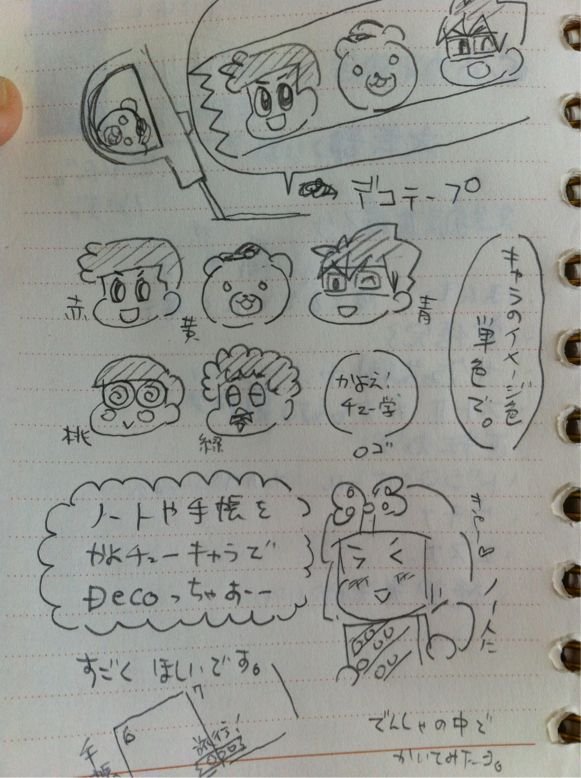 デコテープ
赤
黄
青
キャラのイメージ色
単色で。
桃
緑
かよえ!
チュー学
ロゴ
ノートや手帳を
かよチューキャラで
Decoっちゃおーー
らく
ノートに
すごくほしいです。
手帳
6
7
旅行!
でんしゃの中で
かいてみたっす。